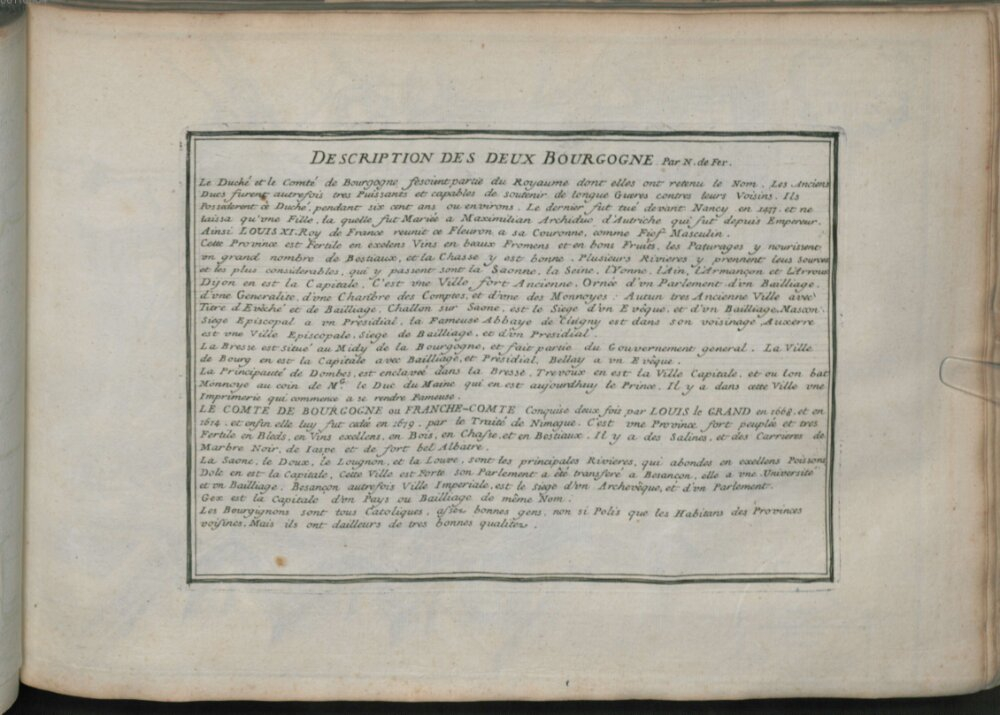 DESCRIPTION DES DEUX BOURGOGNE. Par N. de Fer.
Le Duché et le Comté de Bourgogne fesoient partie du Royaume dont elles ont retenu le Nom. Les Anciens
Ducs furent autrefois tres Puissants et capables de soutenir de longue Gueres contres leurs Voisins. Ils
Possederent ce Duché, pendant six cent ans ou environs. Le dernier fut tué devant Nancy en 1477. et ne
laissa qu'une Fille, la quelle fut Mariée a Maximilian Archiduc d'Autriche qui fut depuis Empereur.
Ainsi LOUIS XI. Roy de France reunit ce Fleuron a sa Couronne, comme Fief Masculin.
Cette Province est Fertile en exelens Vins en beaux Fromens et en bons Fruits, les Paturages y nourissent
vn grand nombre de Bestiaux, et la Chasse y est bonne. Plusieurs Rivieres y prennent leus sources
et les plus considerables, qui y passent sont la Saonne, la Seine, l'Yonne, l'Ain, l'Armançon et l'Arroux
Dijon en est la Capitale, C'est vne Ville fort Ancienne, Ornée d'vn Parlement d'vn Bailliage,
d'vne Generalite, d'vne Chambre des Comptes, et d'vne des Monnoyes: Autun tres Ancienne Ville avec
Titre d'Evêché et de Bailliage, Challon sur Saone, est le Siege d'vn Evêque, et d'vn Bailliage, Mascon
Siege Episcopal a vn Presidial, la Fameuse Abbaye de Clugny est dans son voisinage, Auxerre
est vne Ville Episcopale, Siege de Bailliage, et d'vn Presidial.
La Bresse est situé au Midy de la Bourgogne, et fait partie du Gouvernement general. La Ville
de Bourg en est la Capitale avec Bailliage, et Présidial, Bellay a vn Evêque.
La Principauté de Dombes, est enclavée dans la Bresse, Trevoux en est la Ville Capitale, et ou l'on bat
Monnoye au coin de Mgr. le Duc du Maine qui en est aujourdhuy le Prince. Il y a dans cette Ville vne
Imprimerie qui commence a se rendre Fameuse.
LE COMTE DE BOURGOGNE ou FRANCHE-COMTE Conquise deux fois par LOUIS le GRAND en 1668. et en
1674. et enfin elle luy fut cedée en 1679. par le Traité de Nimegue. C'est vne Province fort peuplée et tres
Fertile en Bleds, en Vins exellens, en Bois, en Chasse, et en Bestiaux. Il y a des Salines, et des Carrieres de
Marbre Noir, de Iaspe et de fort bel Albatre.
La Saone, le Doux, le Lougnon, et la Louve, sont les principales Rivieres, qui abondes en exellens Poissons
Dole en est la Capitale, Cette Ville est Forte son Parlement a été transferé a Besançon, elle a vne Université
et vn Bailliage, Besançon autrefois Ville Imperiale, est le siege d'vn Archevêque, et d'vn Parlement.
Gex est la Capitale d'vn Pays ou Bailliage de même Nom.
Les Bourgignons sont tous Catoliques, assez bonnes gens, non si Polis que les Habitans des Provinces
voisines, Mais ils ont dailleurs de tres bonnes qualitez.